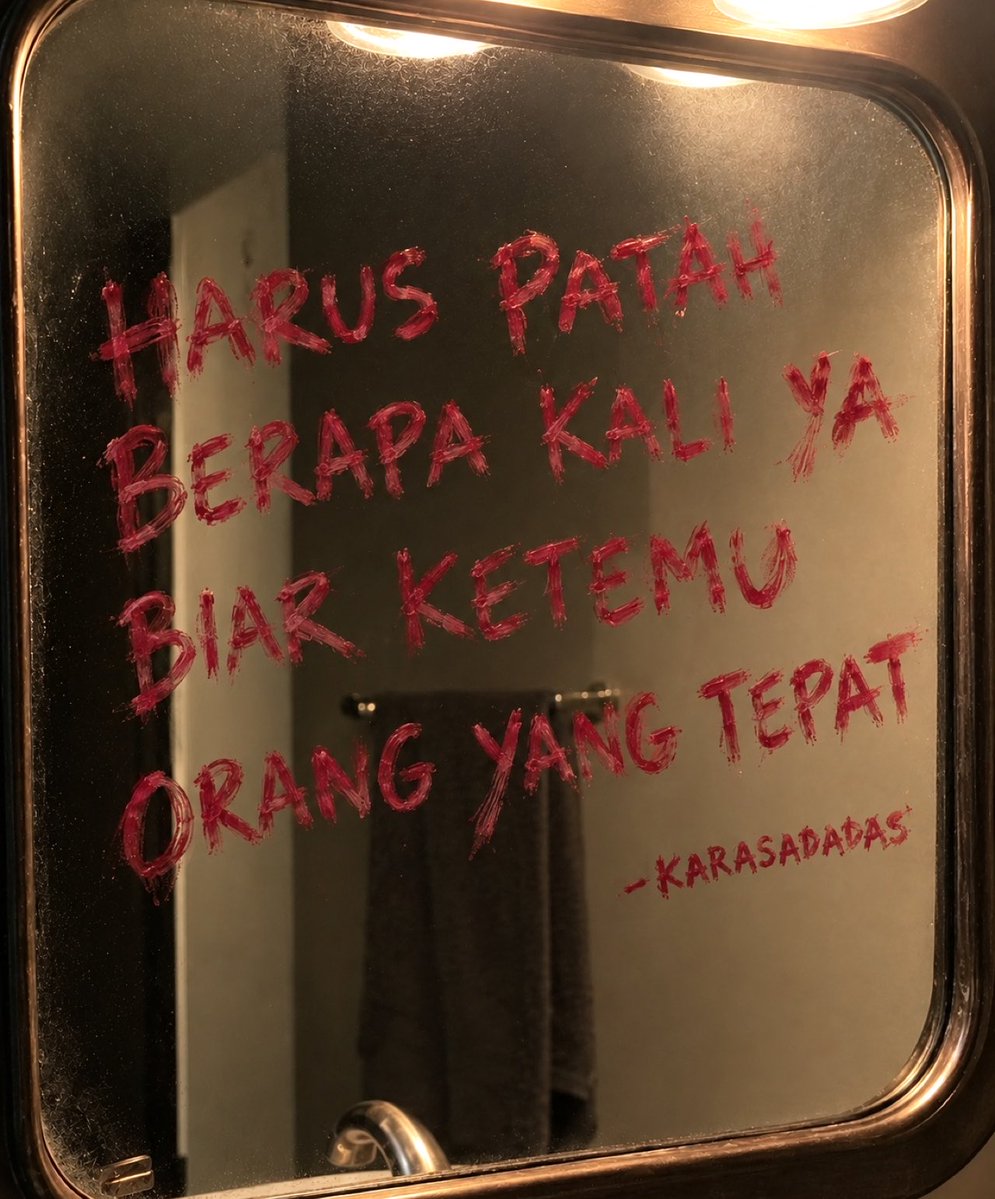 HARUS PATAH
BERAPA KALI YA
BIAR KETEMU
ORANG YANG TEPAT
-KARASADADAS